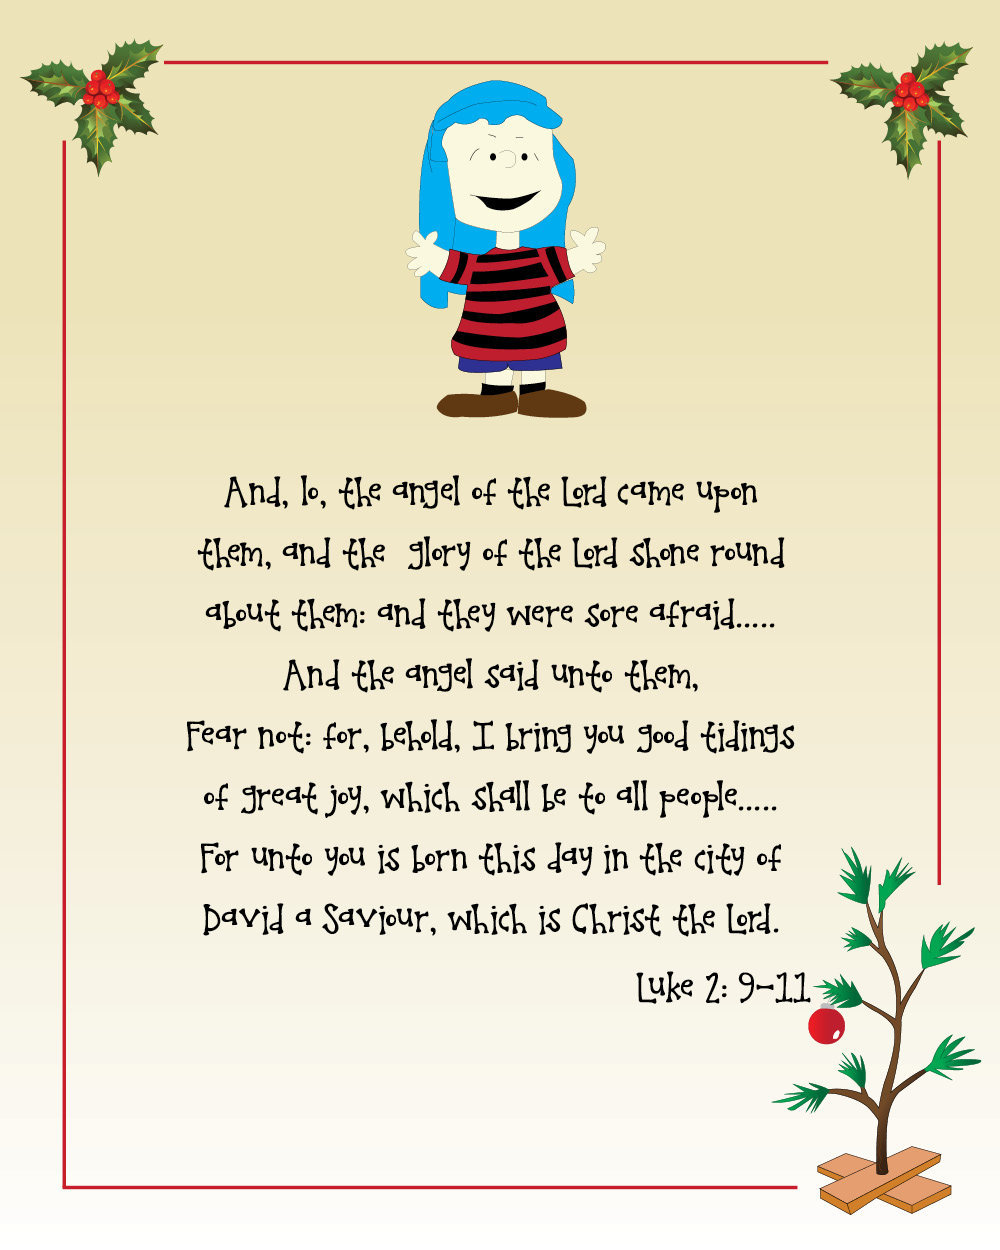 And, lo, the angel of the Lord came upon
them, and the glory of the Lord shone round
about them: and they were sore afraid.....
And the angel said unto them,
Fear not: for, behold, I bring you good tidings
of great joy, which shall be to all people.....
For unto you is born this day in the city of
David a Saviour, which is Christ the Lord.
Luke 2: 9-11